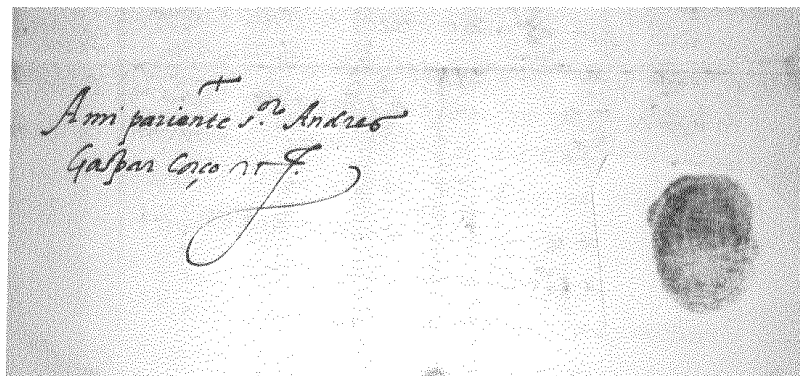 A mi pariente s.or Andres
Gaspar Corço